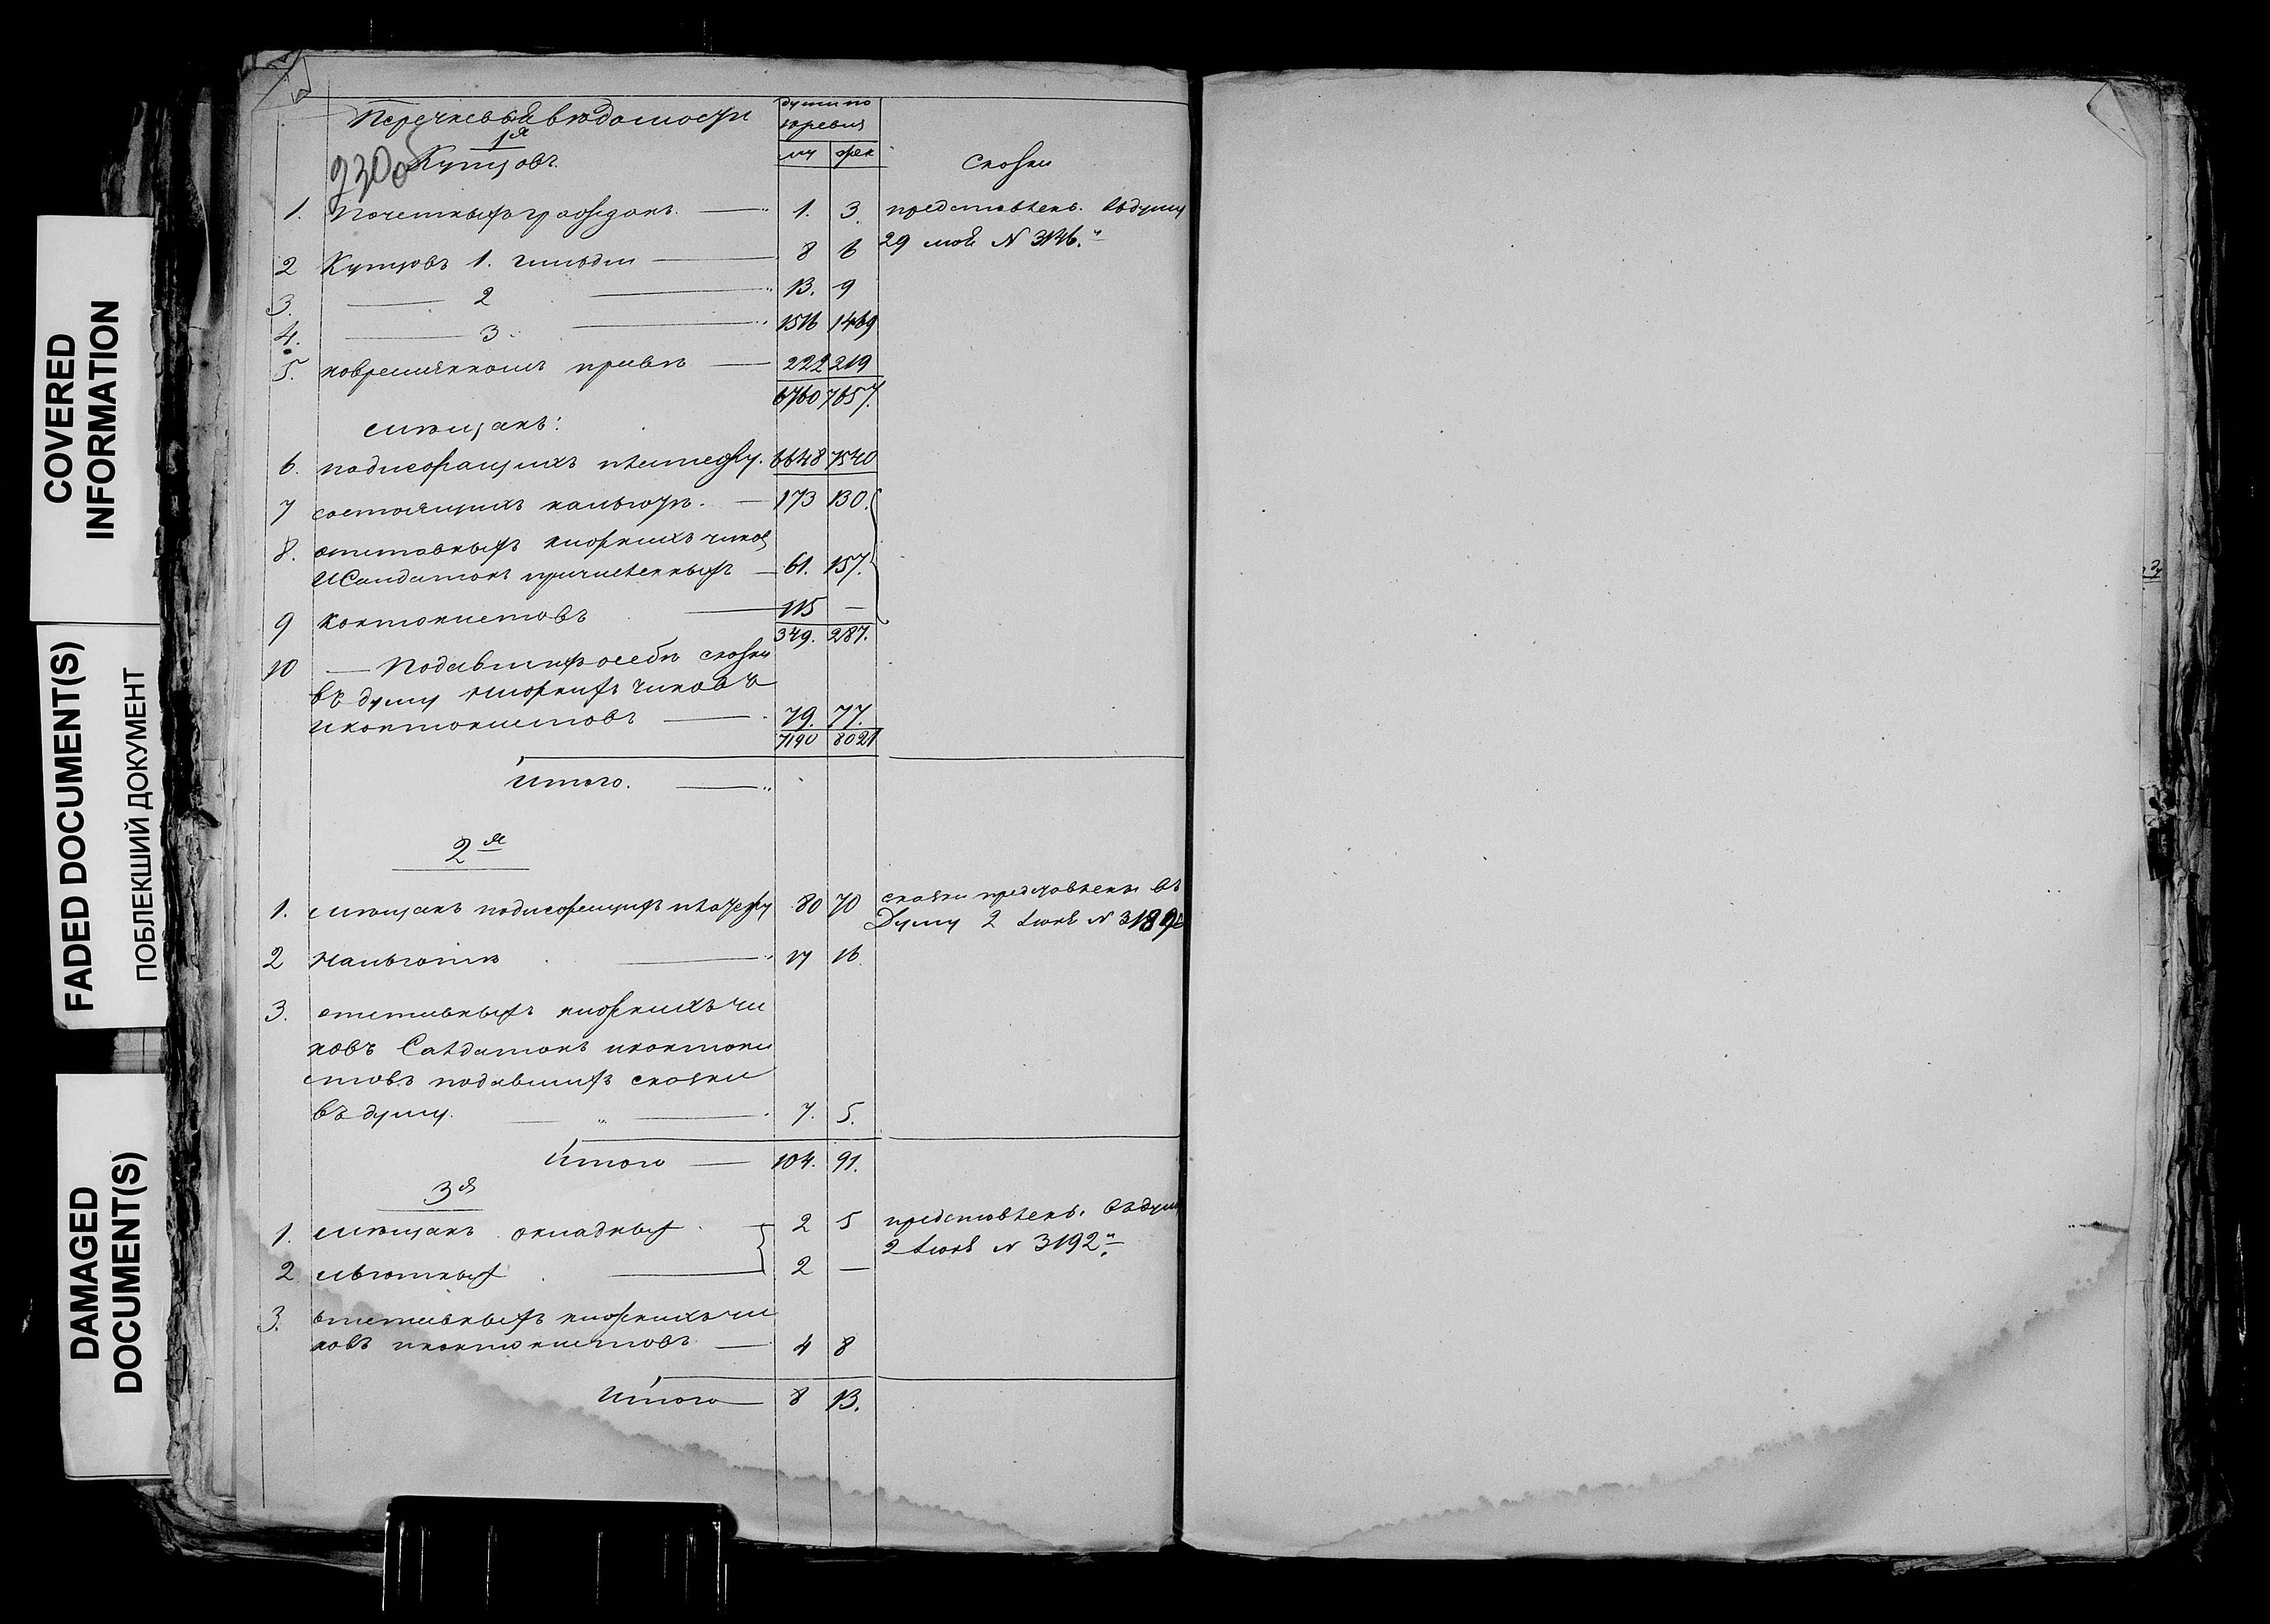 COVERED
INFORMATION
FADED DOCUMENT(S)
ПОБЛЕКШИЙ ДОКУМЕНТ
DAMAGED
DOCUMENT(S)
Перечневыя вѣдомости
души по
1я
Купцовъ
му жен
Сказки
1. Почетныхъ гражданъ. 1. 3. представлены въ думу
29 мая N
2 Купцовъ 1. гильдіи 8 6
3. 2 13. 9
4. 3. 1516 1469
5. 222 219
6760 7657.
мѣщанъ:
6. подлежащихъ платежу. 6648 7540
7 состоящихъ на льготѣ. 173 130.
8. отставныхъ нижнихъ чинов
и Салдатокъ причисленныхъ 61. 157.
9 Кантонистовъ 115 —
349. 287.
10 — Подавшихъ особѣ сказки
въ думу нижнихъ чиновъ
и кантонистовъ 79. 77.
7190 8021
Итого.
2я
1. мѣщанъ подлежащихъ платежу 80 70 сказки представлены въ
Думу 2 Іюня N
2 На льготѣ 17 16
3. отставныхъ нижнихъ чи
новъ Салдатокъ и кантони
стовъ подавшихъ сказки
въ думу. 7. 5.
Итого 104. 91.
3я
1. мѣщанъ окладныхъ 2 5 представлены въ думу
2 Іюня N 3192
2 льготныхъ 2 —
3. отставныхъ нижнихъ чи
новъ и кантонистовъ 4 8
Итого 8 13.